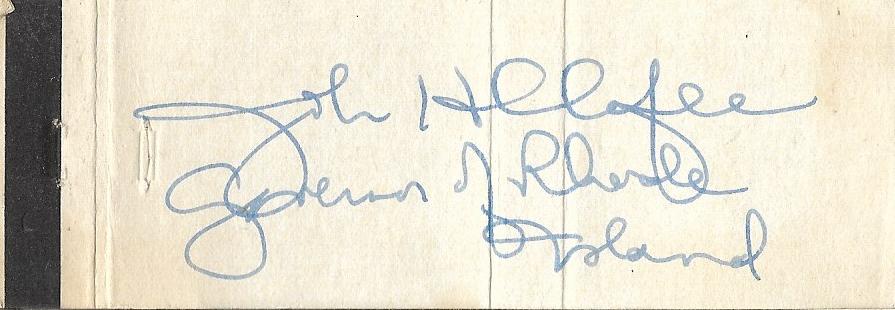 John H Chafee
Governor of Rhode
Island